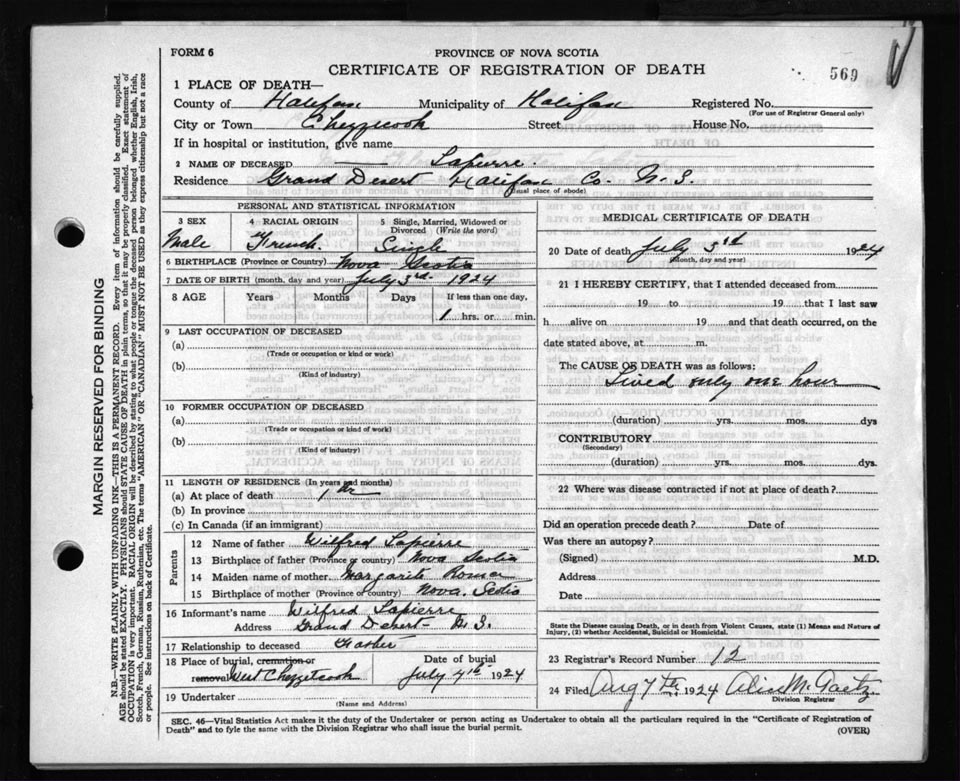 FORM 6
PROVINCE OF NOVA SCOTIA
CERTIFICATE OF REGISTRATION OF DEATH
569
1 PLACE OF DEATH—
County of Halifax Municipality of Halifax Registered No.
(For use of Registrar General only)
City or Town Chezzecook Street House No.
If in hospital or institution, give name
2 NAME OF DECEASED —— Lapierre.
Residence Grand Desert Halifax Co. N. S.
(Usual place of abode)
PERSONAL AND STATISTICAL INFORMATION
3 SEX 4 RACIAL ORIGIN 5 Single, Married, Widowed or Divorced (Write the word)
Male French. Single
6 BIRTHPLACE (Province or Country) Nova Scotia
7 DATE OF BIRTH (month, day and year) July 3rd 1924
8 AGE Years Months Days If less than one day,
1 hrs. or min.
9 LAST OCCUPATION OF DECEASED
(a)
(Trade or occupation or kind or work)
(b)
(Kind of industry)
10 FORMER OCCUPATION OF DECEASED
(a)
(Trade or occupation or kind or work)
(b)
(Kind of industry)
11 LENGTH OF RESIDENCE (In years and months)
(a) At place of death 1 hr
(b) In province
(c) In Canada (if an immigrant)
Parents
12 Name of father Wilfred Lapierre
13 Birthplace of father (Province or country) Nova Scotia
14 Maiden name of mother Margarite
15 Birthplace of mother (Province or country) Nova. Scotia
16 Informant's name Wilfred Lapierre
Address Grand Desert N. S.
17 Relationship to deceased Father
18 Place of burial, cremation or removal West Chezzetcook Date of burial July 4th 1924
19 Undertaker
(Name and Address)
MEDICAL CERTIFICATE OF DEATH
20 Date of death July 3rd 1924
(Month, day and year)
21 I HEREBY CERTIFY, that I attended deceased from
19 to 19 that I last saw
h alive on 19 and that death occurred, on the
date stated above, at m.
The CAUSE OF DEATH was as follows:
Lived only one hour
(duration) yrs. mos. dys
CONTRIBUTORY
(Secondary)
(duration) yrs. mos. dys.
22 Where was disease contracted if not at place of death?
Did an operation precede death? Date of
Was there an autopsy?
(Signed) M.D.
Address
Date
State the Disease causing Death, or in death from Violent Causes, state (1) Means and Nature of
Injury, (2) whether Accidental, Suicidal or Homicidal.
23 Registrar's Record Number 12
24 Filed Aug 7th 1924 Alice M. Gaetz
Division Registrar
SEC. 46—Vital Statistics Act makes it the duty of the Undertaker or person acting as Undertaker to obtain all the particulars required in the "Certificate of Registration of
Death" and to fyle the same with the Division Registrar who shall issue the burial permit.
(OVER)
MARGIN RESERVED FOR BINDING
N.B.—WRITE PLAINLY WITH UNFADING INK—THIS IS A PERMANENT RECORD. Every item of information should be carefully supplied.
AGE should be stated EXACTLY. PHYSICIANS should STATE CAUSE OF DEATH in plain terms, so that it may be properly classified. Exact statement of
OCCUPATION is very important. RACIAL ORIGIN will be described by stating to what people or tongue the deceased person belonged whether English, Irish,
Scotch, French, German, Russian, Ruthenian, etc. The terms "AMERICAN" OR "CANADIAN" MUST NOT BE USED as they express citizenship but not a race
or people. See instructions on back of Certificate.